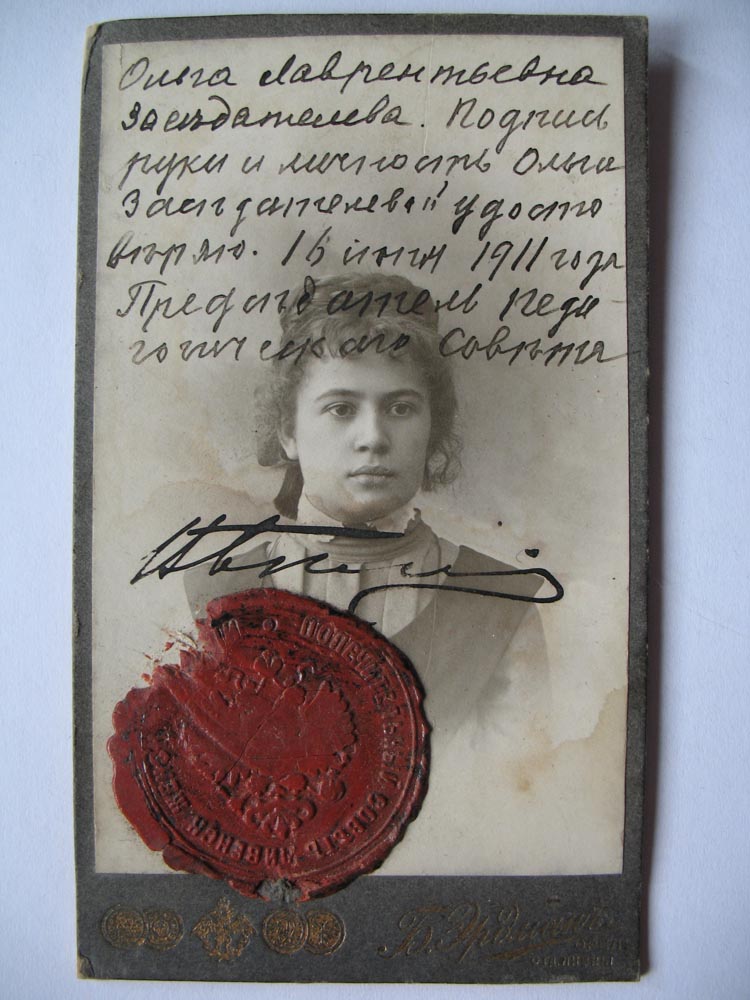 Ольга Лаврентьевна
Засѣдателева. Подпись
руки и личность Ольги
Засѣдателевой удосто
вѣряю. 16 июня 1911 года
Предсѣдатель педа-
гогическаго Совѣта
ПОПЕЧИТЕЛЬНЫЙ СОВѢТЪ
Б.